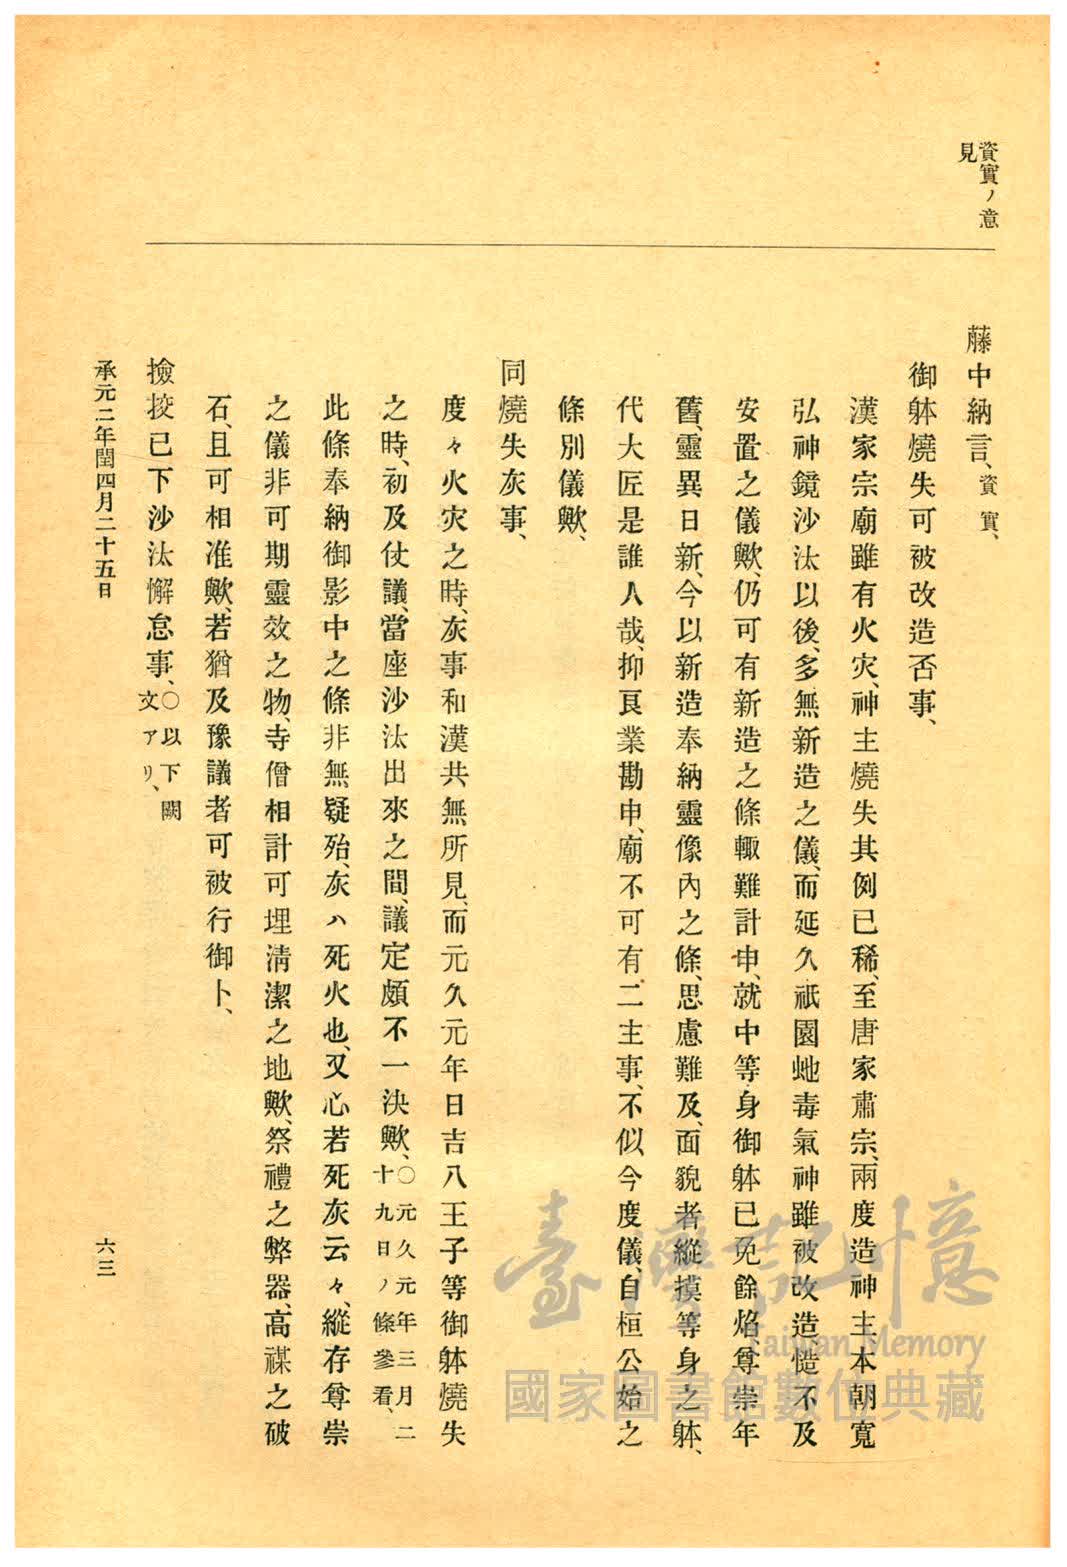 資實ノ意
見
藤中納言、資實、
御躰燒失可被改造否事、
漢家宗廟雖有火灾、神主燒失其例已稀、至唐家肅宗、兩度造神主本朝寬
弘神鏡沙汰以後、多無新造之儀、而延久祇園虵毒氣神雖被改造、慥不及
安置之儀歟、仍可有新造之條輙難計申、就中等身御躰已免餘焰、尊崇年
舊、靈異日新、今以新造奉納靈像內之條、思慮難及、面貌者縱摸等身之躰、
代大匠是誰人哉、抑良業勘申、廟不可有二主事、不似今度儀、自桓公始之
條別儀歟、
同燒失灰事、
度々火灾之時、灰事和漢共無所見、而元久元年日吉八王子等御躰燒失
之時、初及仗議、當座沙汰出來之間、議定頗不一決歟、〇元久元年三月二
十九日ノ條參看、
此條奉納御影中之條非無疑殆、灰ハ死火也、又心若死灰云々、縱存尊崇
之儀非可期靈效之物、寺僧相計可埋淸潔之地歟、祭禮之弊器、高禖之破
石、且可相准歟、若猶及豫議者可被行御卜、
撿挍已下沙汰懈怠事、〇以下闕
文アリ、
承元二年閏四月二十五日
六三
臺灣記憶
Taiwan Memory
國家圖書館數位典藏